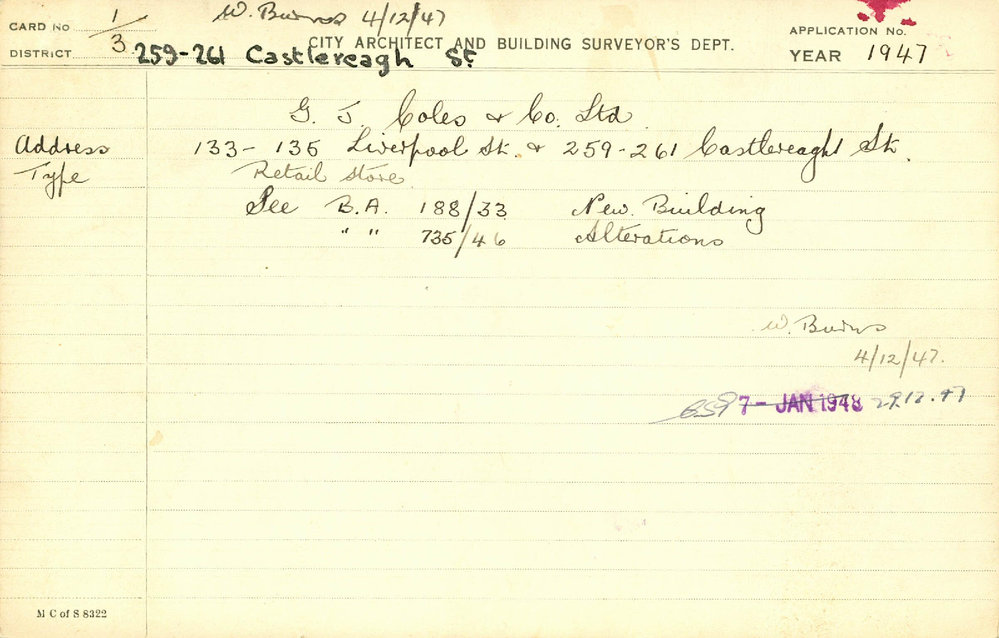 CARD No 1/3 W. Burns 4/12/47 APPLICATION No.
CITY ARCHITECT AND BUILDING SURVEYOR'S DEPT.
DISTRICT 259-261 Castlereagh St. YEAR 1947
G. J. Coles & Co. Ltd
Address 133-135 Liverpool St. & 259-261 Castlereagh St.
Type Retail Store
See B.A. 188/33 New Building
" " 735/46 Alterations
W. Burns
4/12/47.
7 - JAN 1948 29.12.47
M C of S 8322